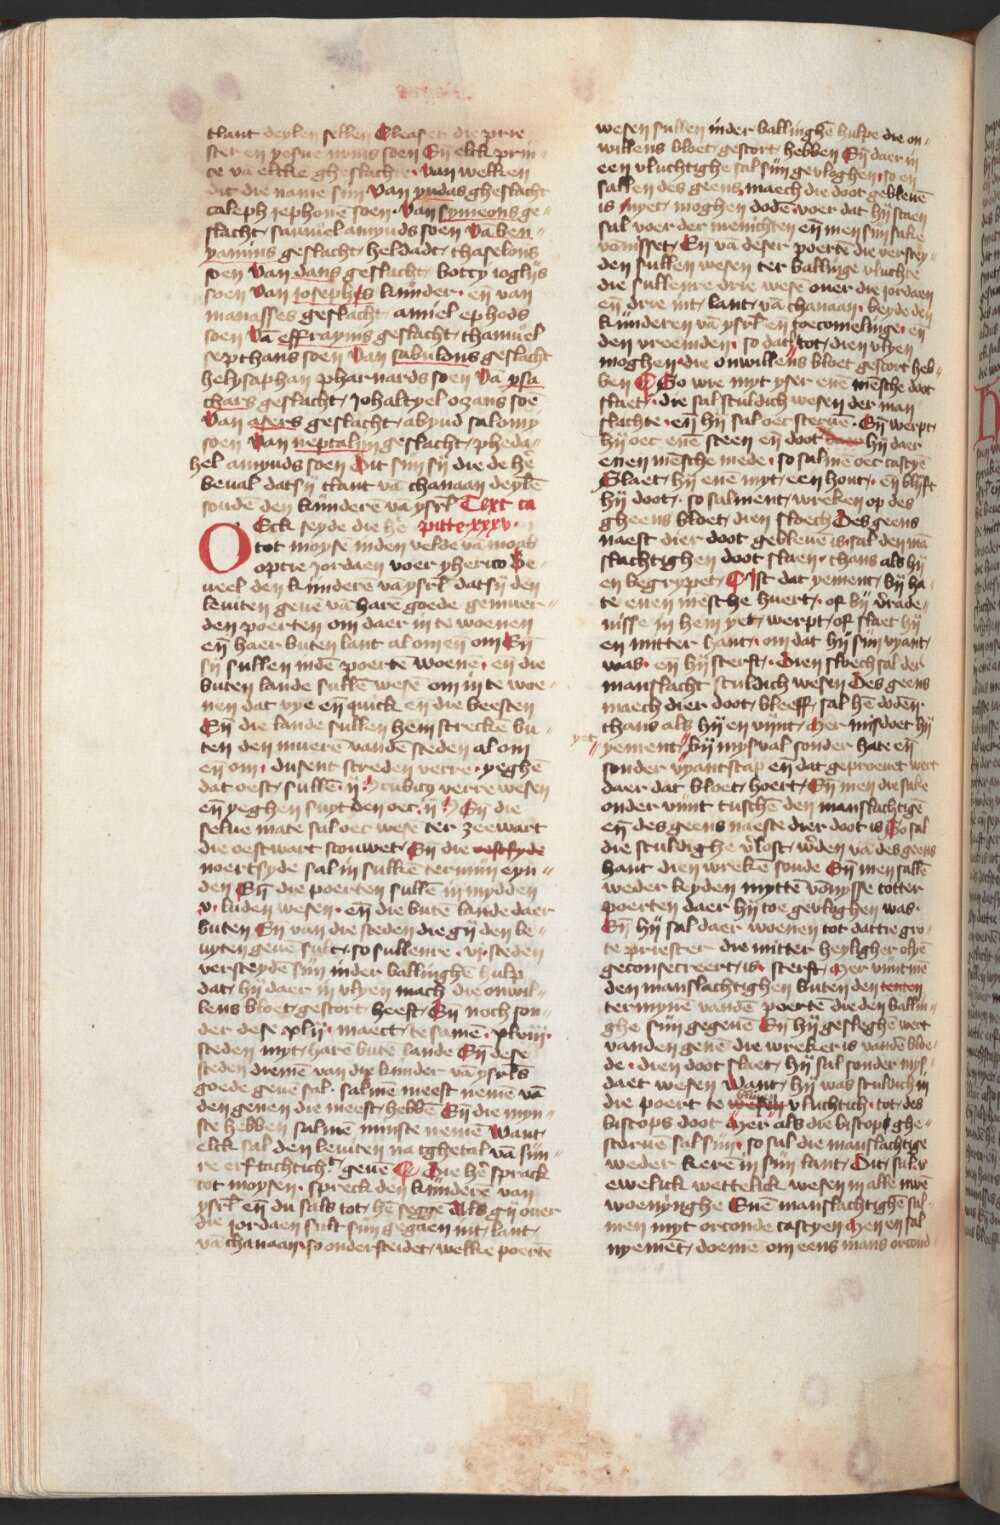 tlant deylen sellen Eleaser die prie
ster en yosue nuns soen En elck prin
ce vā elcke gheslachte van welken
dit die name sijn Van yudas gheslacht
caleph jephone soen Van symeons ge
slacht samuel amyuds soen Vā ben
yamins geslacht heldadt thaselons
soen Van dans geslacht botty ioglijs
soen Van iosephes kijnder en van
manasses geslacht amiel ephods
soen Vā effrayms geslacht thamuel
septhans soen Van sabulons geslacht
helysaphan pharnards soen Vā ysa
chars geslacht johaltyel ozans soē
Van asers geslacht abyud salomy
soen Van neptalijn geslacht pheda
hel amyuds soen Dit sijn sij die de hē
beual dat sij tlant vā chanaan deylē
souden den kijnderē vā ysrl Text ca
Oeck seyde die hē pittē xxxv
tot moyse inden velde vā moab
op tie jordaen voer yherico Be
ueel den kijnderē vā ysrl dat sij den
leuiten geuē vā hare goede gemuer
den poerten om daer in te woenen
en haer buten lant al om en om En
sij sullen indē poertē woenē en die
buten lande sullē wesē om in te woe
nen dat vye en quick en die beesten
En die lande sullen hem streckē bu
ten den muerē vandē steden al om
en om dusent screden verre yeghē
dat oest sullē ij cubitꝰ verre wesen
en yeghen suyt den oec ij En die
selue mate sal oec wesē ter zeewart
die oestwart scouwet En die oestsyde
noertsyde sal in sulkē termijn eyn
den En die poerten sullē in mydden
v luden wesen en die butē lande daer
buten En van die steden die gij den le
uyten geuē sult so sullenre vi steden
versteydē sijn inder ballinghē hulp
dat hij daer in vlyen mach die onwil
lens bloet gestort heeft En noch son
der dese xlij maect te samē xlviij
steden myt harē butē lande En dese
steden diemē van dyx kijnder vā ysrls
goede geuē sal salmē meest nemē vā
den genen die meest hebbē En die myn
ste hebben salmē minste nemē Want
elck sal den leuiten na tghetal vā sijn
re erftachtich geuē Die hē sprack
tot moysen spreck den kijnderē van
ysrl en du sals tot hē segge Als gij ouer
die jordaen sult sijn gegaen int lant
vā chanaan so ondersteidet welke poerte
wesen sullen inder ballinghē hulpe die on
willens bloet gestort hebben En daer in
een vluchtighe sal sijn gevloghen so en
sallen des geens maech die doot gebleuē
is nyet moghen dodē voer dat hij staen
sal voer der menichten en men sijn sake
vōnisset En vā deser poertē die verstey
den sullen wesen ter ballinge vluchte
die sullenre drie wesē ouer die jordaen
en drie int lant vā chanaan beyde den
kijnderen vā ysrl en toecomelinge en
den vreemden so dat tot dien vlyen
moghen die onwillens bloet gestort heb
ben So wie myt yser enē mēsche doot
slaet die sal sculdich wesen der man
slachte en hij sal oec steruē En werpt
hij oec enē steen en doot hij daer
enen mēsche mede so salmē oec castyē
Slaet hij enē myt een hout en blijft
hij doot so salment wreken op des
gheens bloet dien sloech Des geens
naest dier doot gebleuē is sal den mā
slachtighen doot slaen thans als hij
en begrypet Ist dat yement bij ha
te enen mēsche huert of bij v̄rade
nisse in hem yet werpt of slaet hij
en mitter hant om dat hij sijn vyant
was en hij sterft Dien sloech sal der
manslacht sculdich wesen Des geens
maech dier doot bleeff sal hē doden
thans als hij en vijnt Mer misdoet hij
yet yement bij mysval sonder hate en
sonder vyantscap en dat geproeuet wert
daer dat bloet hoert En men die sake
onder vint tuschē den manslachtigē
en des geens naeste dier doot is So sal
die sculdighe v̄lost w̄den vā des geens
hant dien wrekē soude En men sallē
weder leyden myttē vōnysse totter
poerten daer hij toe gevloghen was
En hij sal daer woenen tot dat tie gro
te priester die mitter heyligher olyē
geconsecreert is sterft Mer vintmē
den manslachtighen buten den tenten
termynē vandē poertē die den ballin
ghe sijn gegeuē En hij gesleghē wert
vanden genē die wreker is vandē bloe
de dien doot slaet hij sal sonder mys
daet wesen Want hij was sculdich in
die poert te bliuē vluchtich tot des
bistops doot Mer als die bistop ghe
storuē sal sijn so sal die manslachtige
weder kerē in sijn lant Dit sal v
ewelick wettelick wesen in alle uwē
woenynghe Enē manslachtighē sal
men myt orconde castyen Men en sal
nyemēt doemē om eens mans orcond